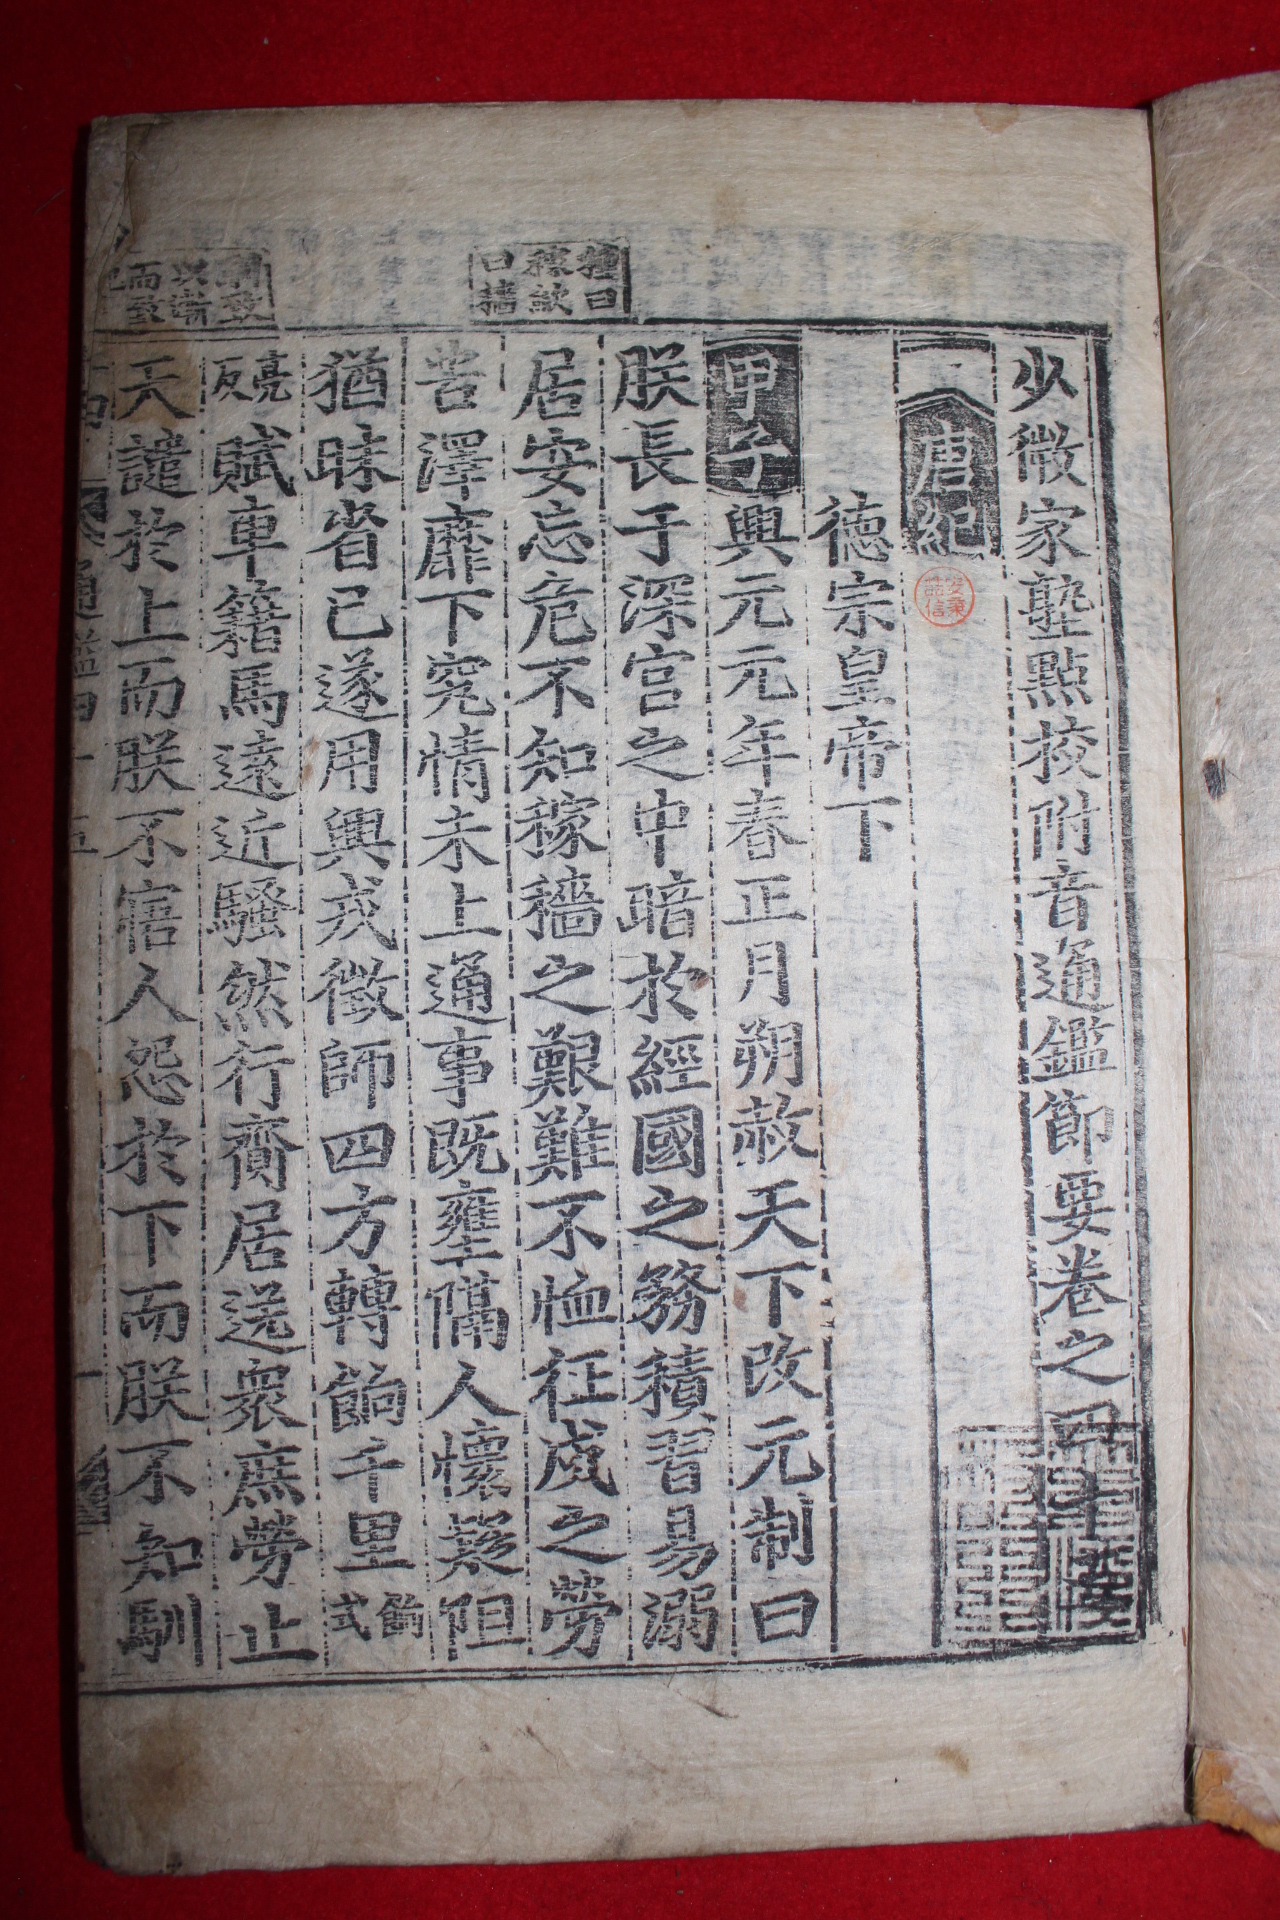 種曰
稼斂
曰穡
馴致
以漸
而致
少微家塾點校附音通鑑節要卷之四十五
唐紀
德宗皇帝下
甲子興元元年春正月朔赦天下改元制曰
朕長于深宮之中暗於經國之務積習易溺
居安忘危不知稼穡之艱難不恤征戍之勞
苦澤靡下究情未上通事既壅隔人懷疑阻
猶昧省己遂用興戎徵師四方轉餉千里餉式
亮反賦車籍馬遠近騷然行齎居送衆庶勞止
天譴於上而朕不寤人怨於下而朕不知馴
通鑑四十五
一